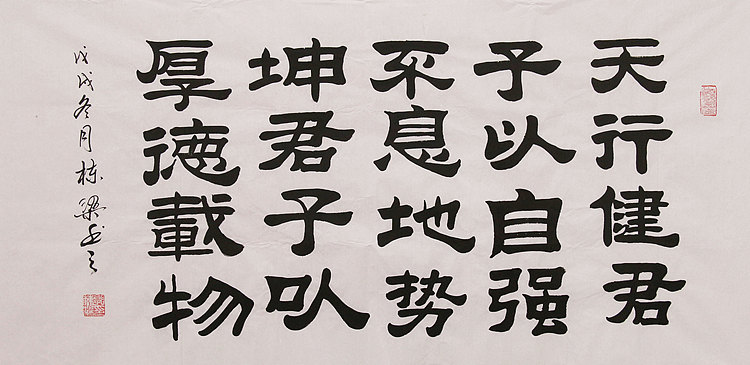 天行健君
子以自强
不息地势
坤君子㕥
厚德載物
戊戌冬月栋梁书之